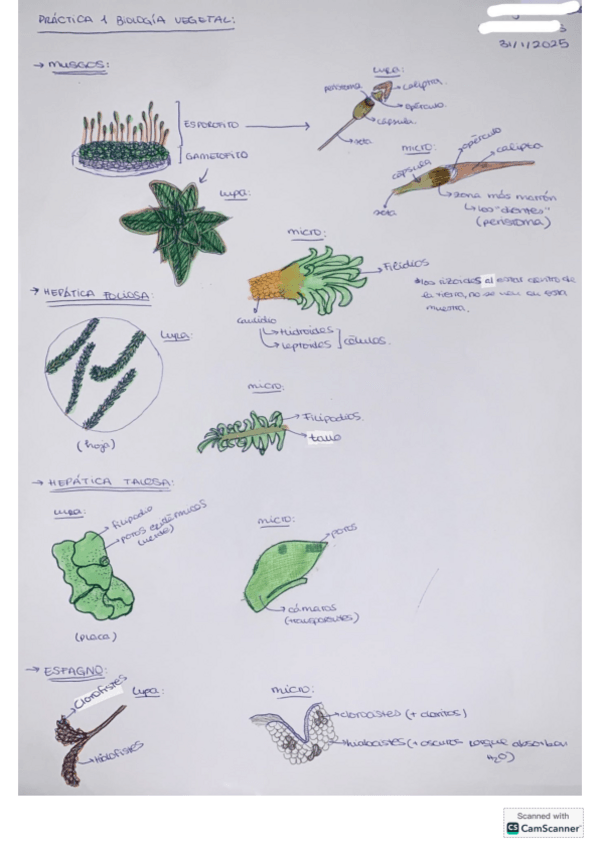 PRÁCTICA 1 BIOLOGÍA VEGETAL:
31/1/2025
→ MUSGOS:
lupa:
peristoma
caliptra
opérculo.
cápsula.
seta
ESPOROFITO
GAMETOFITO
lupa:
micro:
opérculo
caliptra
cápsula
seta
zona más marrón
↳ los "dientes"
(peristoma)
micro:
Filidios
*los rizoides al estar dentro de
la tierra, no se ven en esta
muestra.
caulidio
↳ Hidroides
↳ leptoides
células.
→ HEPÁTICA FOLIOSA:
lupa:
(hoja)
micro:
Filipodios.
tallo
→ HEPÁTICA TALOSA:
lupa:
filipodio
poros epidérmicos
micro:
poros
cámaras
(+transparentes)
(placa)
→ ESPAGNO:
Clorofistes
lupa:
Hidrofistes
micro:
clorocistes (+ claritos)
hialocistes (+ oscuros porque absorben
H₂O)
Scanned with
CS CamScanner